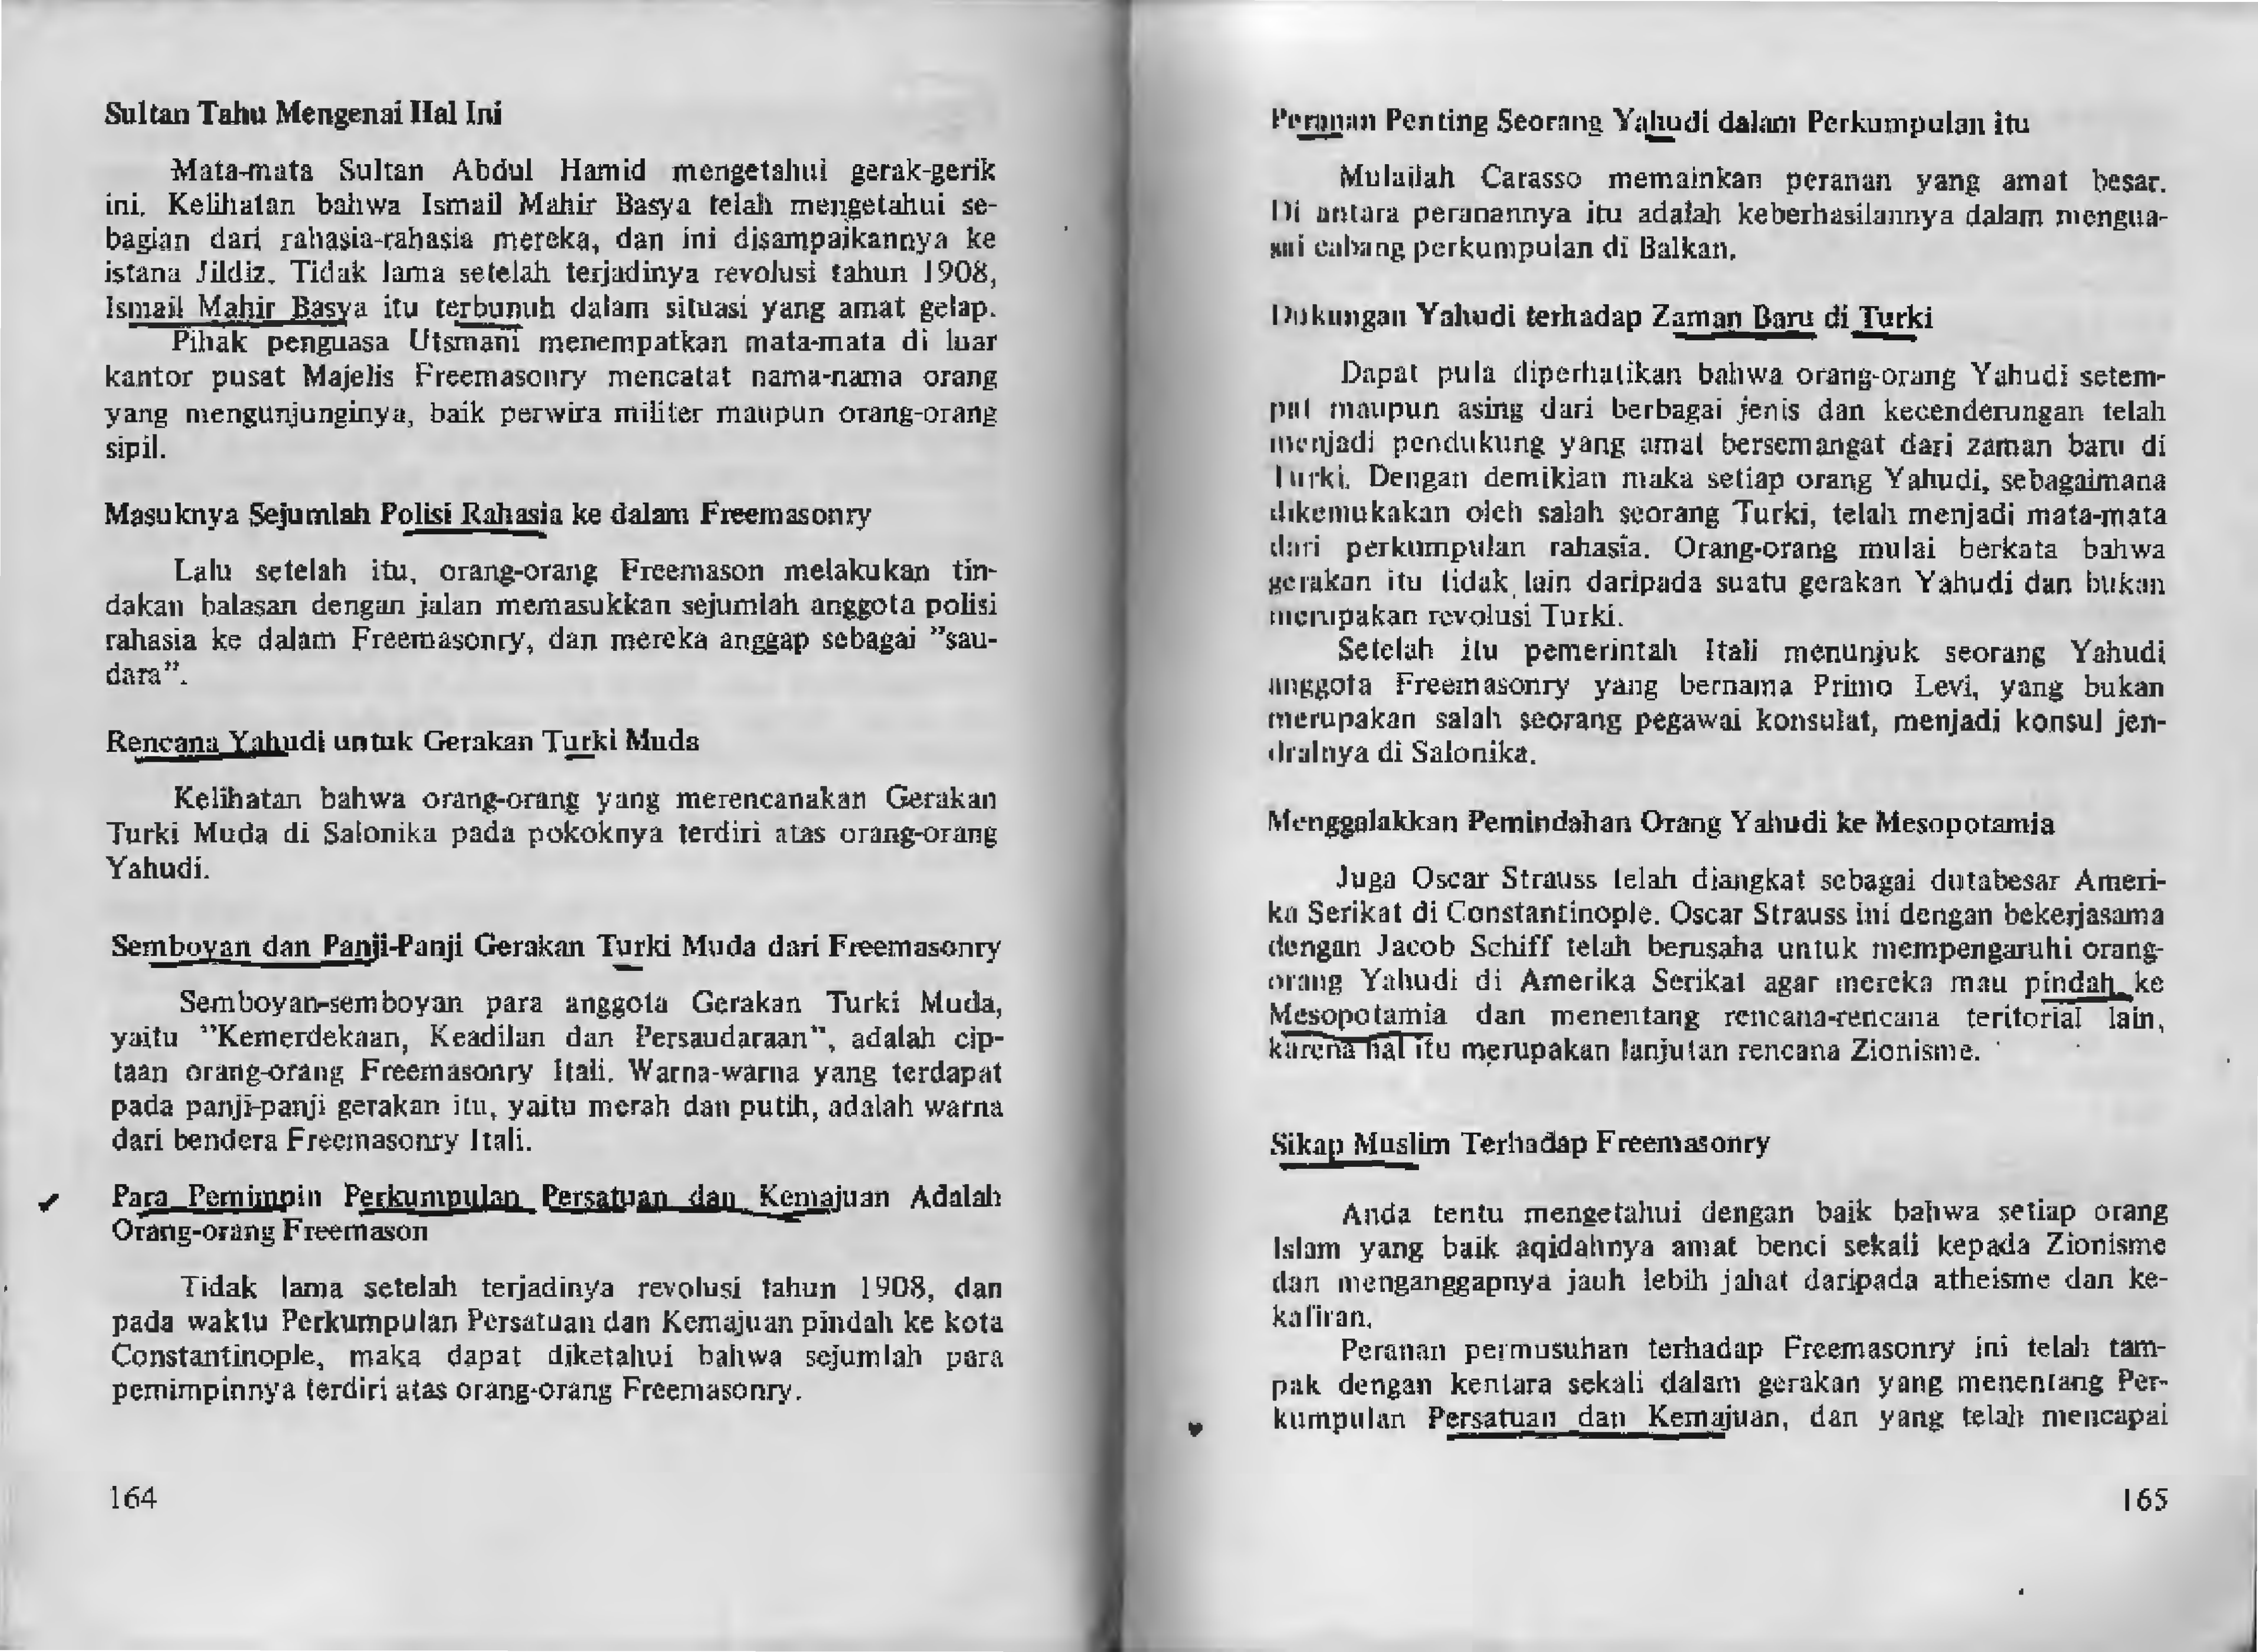 Sultan Tahu Mengenai Hal Ini
Mata-mata Sultan Abdul Hamid mengetahui gerak-gerik
ini. Kelihatan bahwa Ismail Mahir Basya telah mengetahui se-
bagian dari rahasia-rahasia mereka, dan ini disampaikannya ke
istana Jildiz. Tidak lama setelah terjadinya revolusi tahun 1908,
Ismail Mahir Basya itu terbunuh dalam situasi yang amat gelap.
Pihak penguasa Utsmani menempatkan mata-mata di luar
kantor pusat Majelis Freemasonry mencatat nama-nama orang
yang mengunjunginya, baik perwira militer maupun orang-orang
sipil.
Masuknya Sejumlah Polisi Rahasia ke dalam Freemasonry
Lalu setelah itu, orang-orang Freemason melakukan tin-
dakan balasan dengan jalan memasukkan sejumlah anggota polisi
rahasia ke dalam Freemasonry, dan mereka anggap sebagai ”sau-
dara”.
Rencana Yahudi untuk Gerakan Turki Muda
Kelihatan bahwa orang-orang yang merencanakan Gerakan
Turki Muda di Salonika pada pokoknya terdiri atas orang-orang
Yahudi.
Semboyan dan Panji-Panji Gerakan Turki Muda dari Freemasonry
Semboyan-semboyan para anggota Gerakan Turki Muda,
yaitu ”Kemerdekaan, Keadilan dan Persaudaraan”, adalah cip-
taan orang-orang Freemasonry Itali. Warna-warna yang terdapat
pada panji-panji gerakan itu, yaitu merah dan putih, adalah warna
dari bendera Freemasonry Itali.
Para Pemimpin Perkumpulan Persatuan dan Kemajuan Adalah
Orang-orang Freemason
Tidak lama setelah terjadinya revolusi tahun 1908, dan
pada waktu Perkumpulan Persatuan dan Kemajuan pindah ke kota
Constantinople, maka dapat diketahui bahwa sejumlah para
pemimpinnya terdiri atas orang-orang Freemasonry.
164
Peranan Penting Seorang Yahudi dalam Perkumpulan itu
Mulailah Carasso memainkan peranan yang amat besar.
Di antara peranannya itu adalah keberhasilannya dalam mengua-
sai cabang perkumpulan di Balkan.
Dukungan Yahudi terhadap Zaman Baru di Turki
Dapat pula diperhatikan bahwa orang-orang Yahudi setem-
pat maupun asing dari berbagai jenis dan kecenderungan telah
menjadi pendukung yang amat bersemangat dari zaman baru di
Turki. Dengan demikian maka setiap orang Yahudi, sebagaimana
dikemukakan oleh salah seorang Turki, telah menjadi mata-mata
dari perkumpulan rahasia. Orang-orang mulai berkata bahwa
gerakan itu tidak lain daripada suatu gerakan Yahudi dan bukan
merupakan revolusi Turki.
Setelah itu pemerintah Itali menunjuk seorang Yahudi
anggota Freemasonry yang bernama Primo Levi, yang bukan
merupakan salah seorang pegawai konsulat, menjadi konsul jen-
dralnya di Salonika.
Menggalakkan Pemindahan Orang Yahudi ke Mesopotamia
Juga Oscar Strauss telah diangkat sebagai dutabesar Ameri-
ka Serikat di Constantinople. Oscar Strauss ini dengan bekerjasama
dengan Jacob Schiff telah berusaha untuk mempengaruhi orang-
orang Yahudi di Amerika Serikat agar mereka mau pindah ke
Mesopotamia dan menentang rencana-rencana teritorial lain,
karena hal itu merupakan lanjutan rencana Zionisme.
Sikap Muslim Terhadap Freemasonry
Anda tentu mengetahui dengan baik bahwa setiap orang
Islam yang baik aqidahnya amat benci sekali kepada Zionisme
dan menganggapnya jauh lebih jahat daripada atheisme dan ke-
kafiran.
Peranan permusuhan terhadap Freemasonry ini telah tam-
pak dengan kentara sekali dalam gerakan yang menentang Per-
kumpulan Persatuan dan Kemajuan, dan yang telah mencapai
165